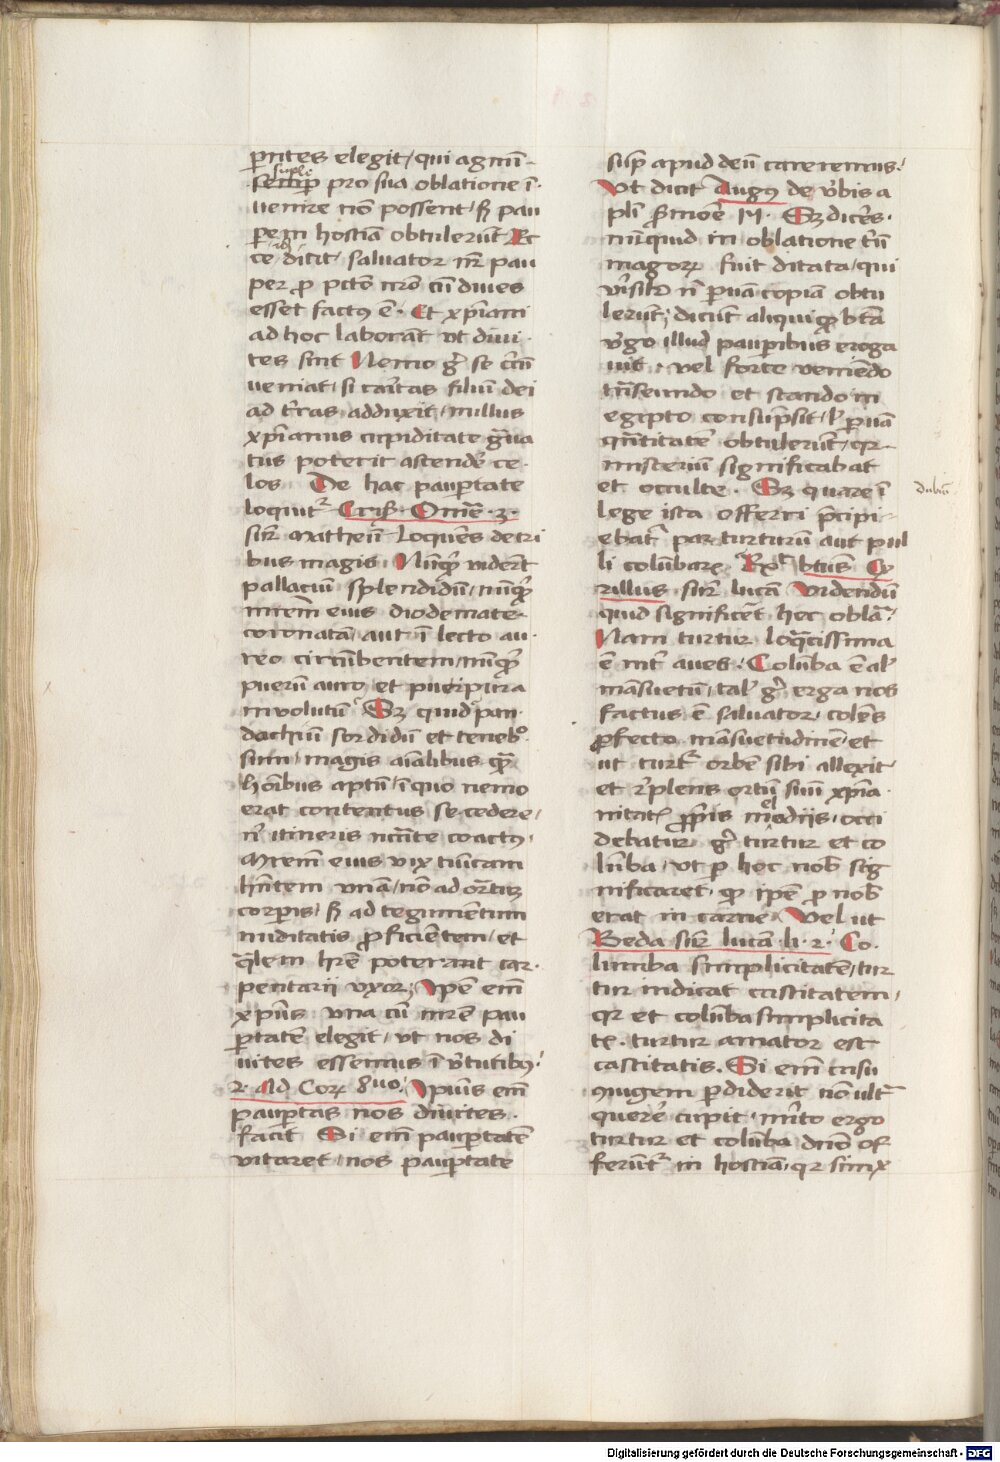 pn̄tes elegit / qui agnū
semp̲ pro sua oblatione ī
simpl̄r
uenire nō possent / sꝫ pau
pem hostiā obtulerūt Rc̄
te / dicit / saluator nr̄ pau
ꝫb
per ꝓ pctō nrō cū diues
esset factꝰ ē · Et xp̄iani
ad hoc laborāt vt diui
tes sint Nemo gͦ se cūū
ueniat / si caritas filiū dei
ad t̄ras adduxit / nullus
xp̄ianus cupiditate gͣua
tus poterit ascendē ce
los De hac paup̲tate
loquitᷣ Cris̄ · Omē · 3 ·
sup̄ matheū Loquēs de tri
bus magis Nūqͥ uiderūt
pallaciū splendidū / nūqͥ
mrēm eius diodemate
coronatā / aut ī lecto au
reo circūbentem / nūqͥ
puerū auro et purpura
inuolutū Sꝫ quid pan
dachiū sordidū et tenebͦ
sum / magis aīalibus qͣ
hoībus aptū / ī quo nemo
erat contentus secedere /
nͥ itineris nctāte coactꝰ ·
Mrēm eius vix tunicam
hn̄tem vnā / nō ad ornatū
corpis / sꝫ ad tegumentum
nuditatis ꝓficientem / et
qͣlem hrē poterant car
pentarii vxor ; Ipē em̄
xpūs vna cū mrē pau
p̲tatē elegit / vt nos di
uites essemus ī v̄tutibꝰ
2 · Ad Corꝫ 8uo · Ipiūs em̄
paup̲tas nos diuites
facit Si em̄ paup̲tatē
vitaret / nos paup̲tate
sup̄ apud deū careremus /
Vt dicit Augꝰ de v̄bis a
pl̄i s̄moē 14 · Sꝫ diceˢ ·
nūquid in oblatione tū
magorꝫ fuit ditata / qui
v̄isil̄r nͦ puā copiā obtu
lerūt ; dicūt aliqui qͥ btā
v̄go illud paup̲ibus eroga
uit · vel forte veniēdo
tn̄seundo et stando in
egipto consūpsit / l̄ puā
qn̄titatē obtulerūt / qꝛ
misteriū significabat
et occulte · Sꝫ quare ī
dubiū
lege ista offerri p̄cipi
ebatᷣ par turturū aut pul
li colūbarꝫ Rx̄ · btūs Cy
rillus sup̄ lucā Videndū
quid significēt hec oblā ·
Nam turtur loqͣcissima
ē int̄ aues · Colūba ē al̄
māsuetū / tal̄ gͦ erga nos
factus ē saluator / colēs
ꝓfecto māsuetudinē / et
ut turtᷣ orbē sibi allexit
et rͤplens ortū suū xp̄ia
nitatꝭ ꝓprijs modiis · occi
el
debatur gͦ turtur et co
lūba · vt ꝑ hoc nob̄ sig
nificaret · qͥ ipē ꝓ nob̄
erat in carne Vel ut
Beda sup̄ lucā · li · 2 · Co
lumba simplicitatē / tur
tur indicat castitatem /
qꝛ et colūba simplicita
tꝭ · turtur amator est
castitatis · Si em̄ casu
cōiugem p̲diderit nō ultᷣ
querē cupit · mīto ergo
turtur et colūba dn̄o of
ferūtᷣ in hostiā / qꝛ simx
Digitalisierung gefördert durch die Deutsche Forschungsgemeinschaft - DFG